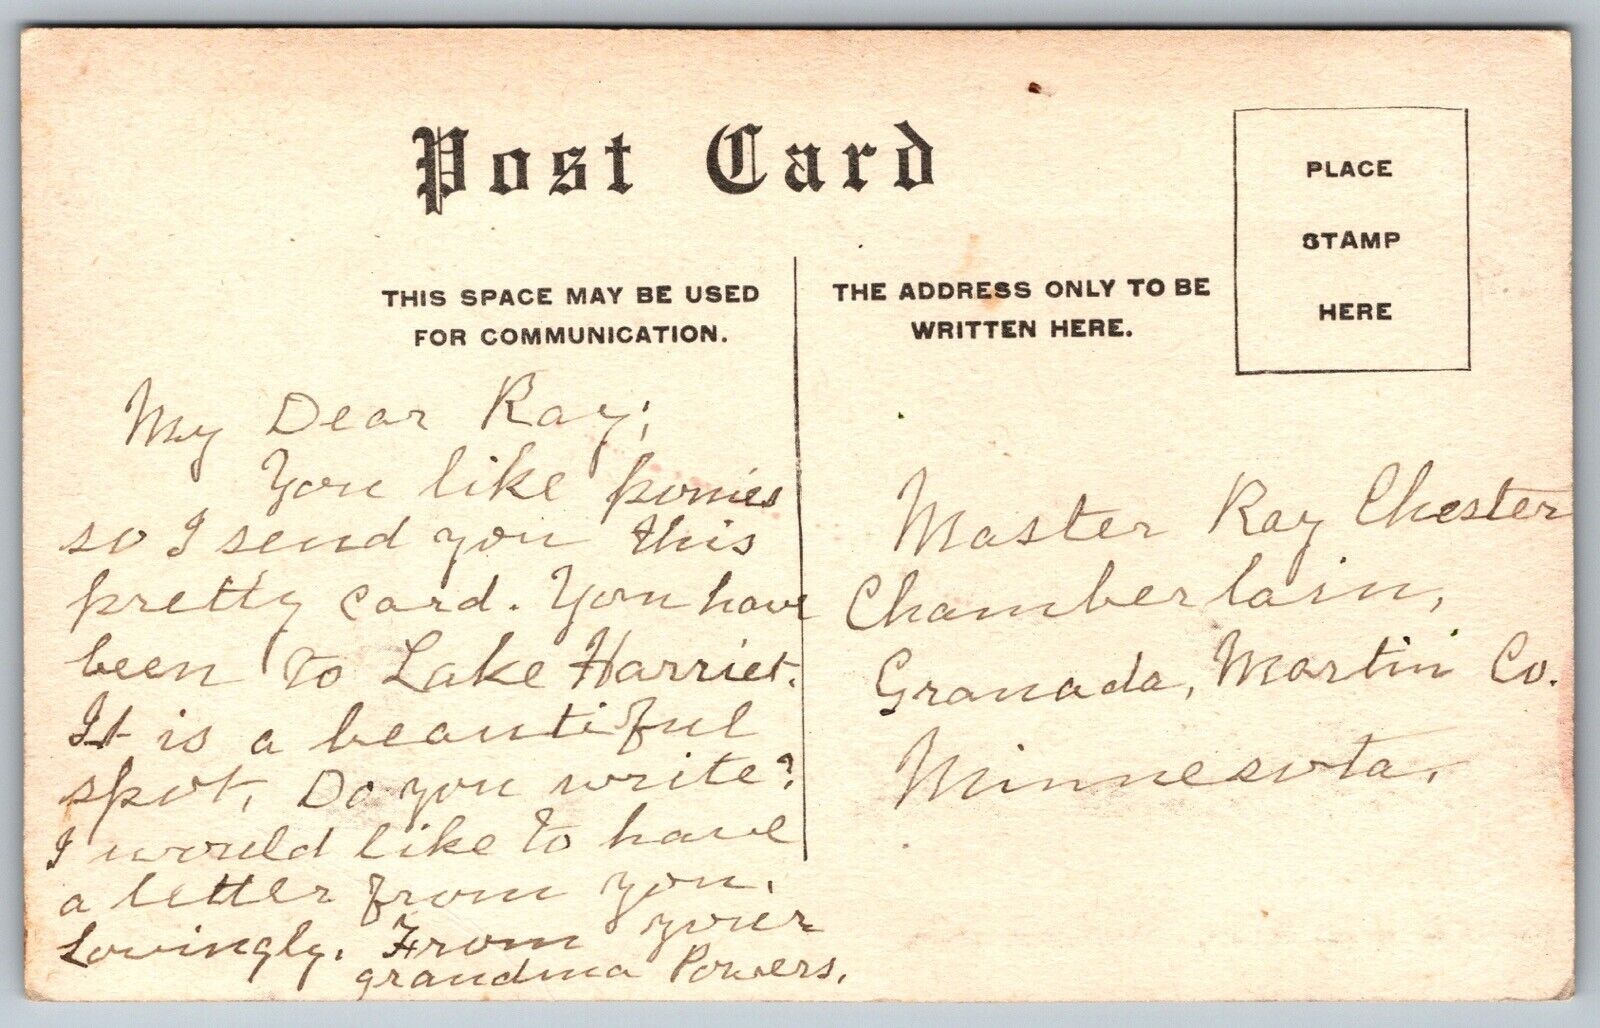 Post Card
THIS SPACE MAY BE USED
FOR COMMUNICATION.
THE ADDRESS ONLY TO BE
WRITTEN HERE.
PLACE
STAMP
HERE
My Dear Ray;
You like ponies
so I send you this
pretty card. You have
been to Lake Harriet.
It is a beautiful
spot, Do you write?
I would like to have
a letter from you.
Lovingly. From your
grandma Powers.
Master Ray Chester
Chamberlain,
Granada, Martin Co.
Minnesota.